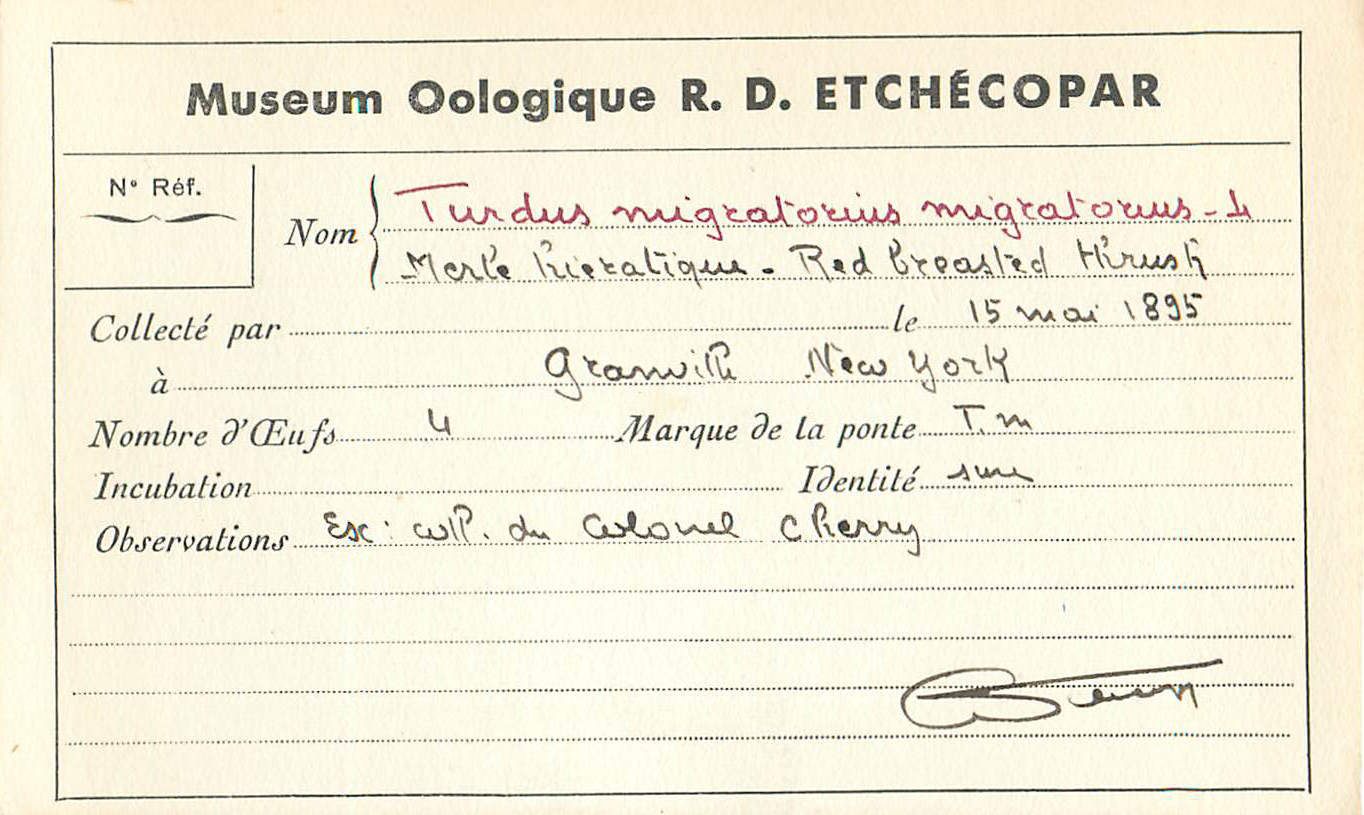 Museum Oologique R. D. ETCHÉCOPAR
N° Réf.
Nom
Turdus migratorius migratorius - 4
Merle hieratique - Red breasted thrush
Collecté par le 15 mai 1895
à Granville New York
Nombre d'Œufs 4 Marque de la ponte T. m
Incubation Identité sure
Observations Esc: coll. du Colonel Cherry